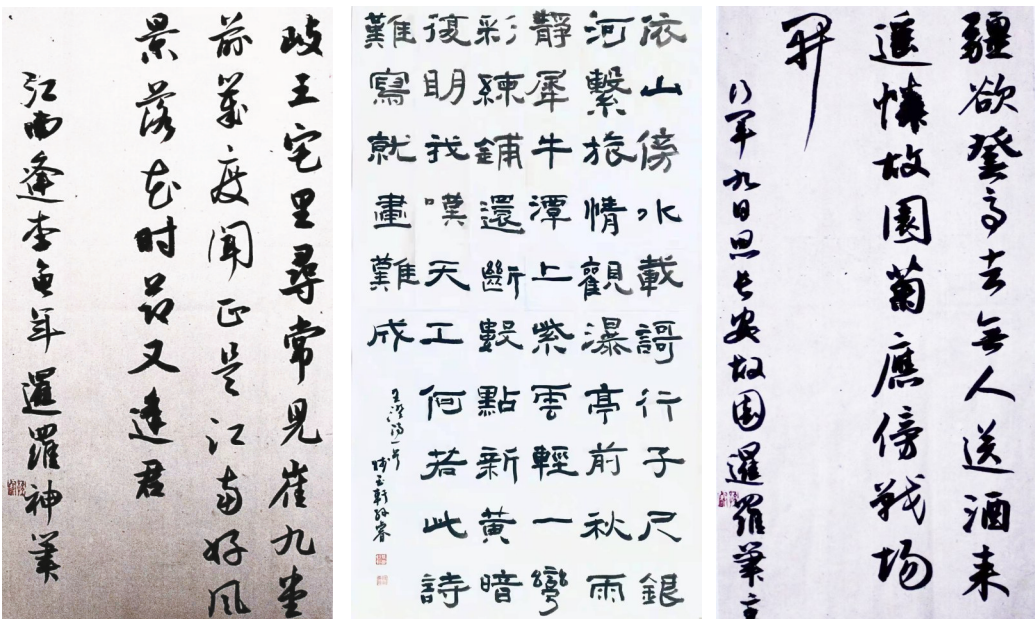 歧王宅里尋常見崔九堂
前幾度聞正是江南好風
景落花时節又逢君
江南逢李龜年 暹羅神筆
依山傍水載謌行千尺銀
河繫旅情觀瀑亭前秋雨
靜犀牛潭上紫雲輕一彎
彩練鋪還斷數點新黃暗
復明我嘆天工何若此詩
難寫就畫難成
疆欲登高去無人送酒来
遥憐故園菊應傍戰場
開
行軍九日思長安故園暹羅筆主